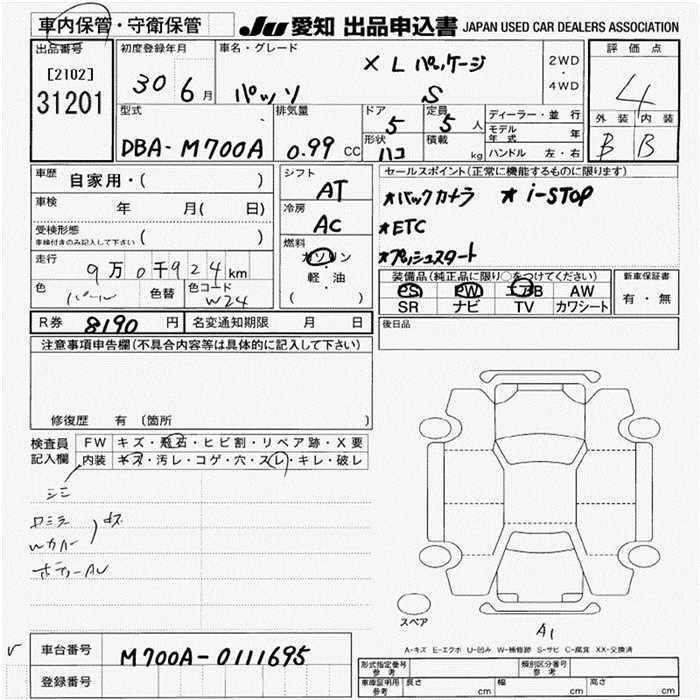 車内保管・守衛保管
JU 愛知 出品申込書 JAPAN USED CAR DEALERS ASSOCIATION
出品番号
[2102]
31201
初度登録年月
30 6 月
車名・グレード
X L パッケージ
パッソ S
2WD
・
4WD
評価点
4
外装 内装
B B
型式
DBA- M700A
排気量
0.99 CC
ドア
5
定員
5 人
形状
ハコ
積載
kg
ディーラー・並行
モデル年式 年
ハンドル 左・右
車歴 自家用・( )
車検 年 月( 日)
受検形態
車検付きのみ記入して下さい ( )
走行 9万0千924km
色 パール 色替 色コード W24
シフト
AT
冷房
AC
燃料
ガソリン
軽・油
( )
セールスポイント(正常に機能するものに限ります)
★バックカメラ ★ i-STOP
★ETC
★プッシュスタート
装備品(純正品に限り○をつけてください)
PS PW エアB AW
SR ナビ TV カワシート
新車保証書
有・無
R券 8190 円 名変通知期限 月 日
後日品
注意事項申告欄(不具合内容等は具体的に記入して下さい)
修復歴 有 〔箇所 〕
検査員記入欄
FW キズ・飛石・ヒビ割・リペア跡・X要
内装 キズ・汚レ・コゲ・穴・スレ・キレ・破レ
シミ
Wカバー
ボディーAU
スペア
A1
A-キズ E-エクボ U-凹み W-補修跡 S-サビ C-腐食 XX-交換済
車台番号 M700A-0111695
登録番号
形式指定番号 参考
類別区分番号 参考
車庫証明用 参考 長さ cm 幅 cm 高さ cm